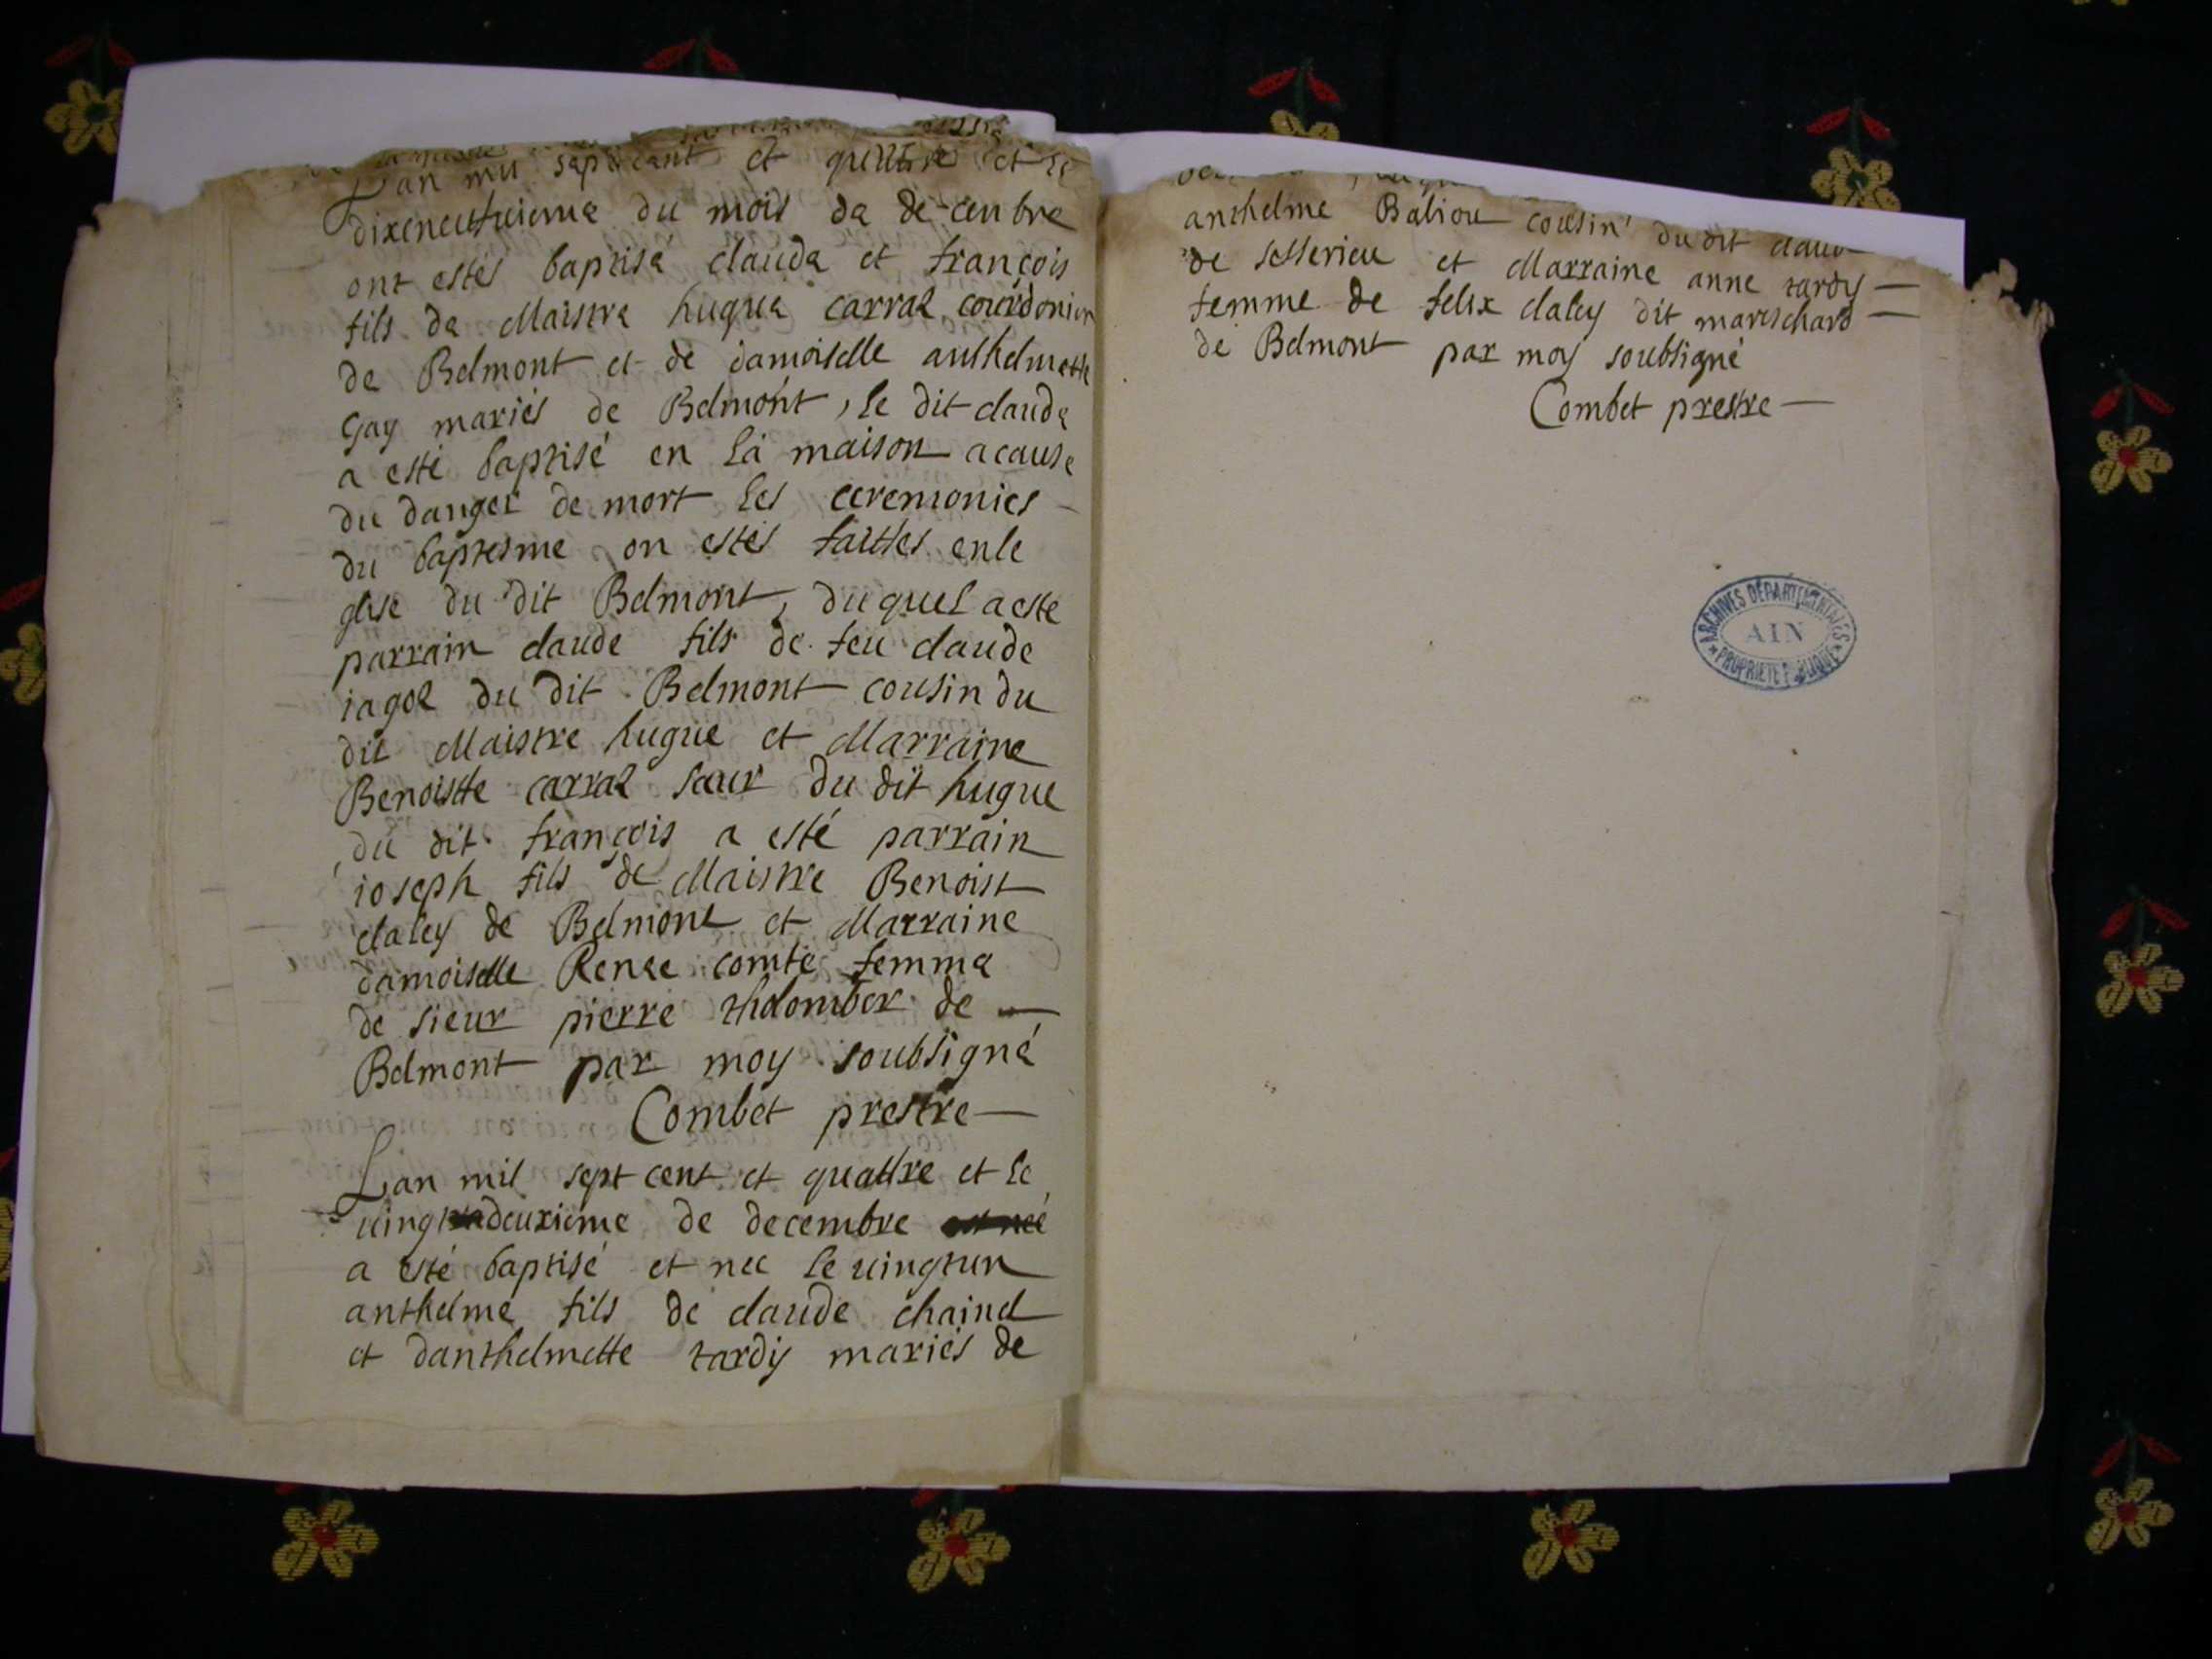 Lan mil sept cent et quattre et le
dixeneufuieme du mois de decenbre
ont estés baptisé claude et françois
fils de Maistre hugue carral courdonier
de Belmont et de damoiselle anthelmette
Gay mariés de Belmont, le dit claude
a esté baptisé en la maison acause
du danger de mort les ceremonies
du baptesme on estés faittes enle
glise du dit Belmont, duquel aeste
parrain claude fils de feu claude
iagol du dit Belmont cousin du
dit Maistre hugue et Marraine
Benoistte carral soeur du dit hugue
du dit françois a esté parrain
ioseph fils de Maistre Benoist
claley de Belmont et Marraine
damoiselle Renee comte femme
de sieur pierre thelomber de
Belmont par moy soubsigné
Combet prestre
Lan mil sept cent et quattre et le
uingtdeuxieme de decembre
a esté baptisé et nee le uingtun
anthelme fils de claude chainel
et danthelmette tardy mariés de
anthelme Babiou cousin du dit claude
de sesserieu et Marraine anne tardy
femme de felix claley dit mareschard
de Belmont par moy soubsigné
Combet prestre
ARCHIVES DÉPARTEMENTALES
AIN
PROPRIÉTÉ PUBLIQUE